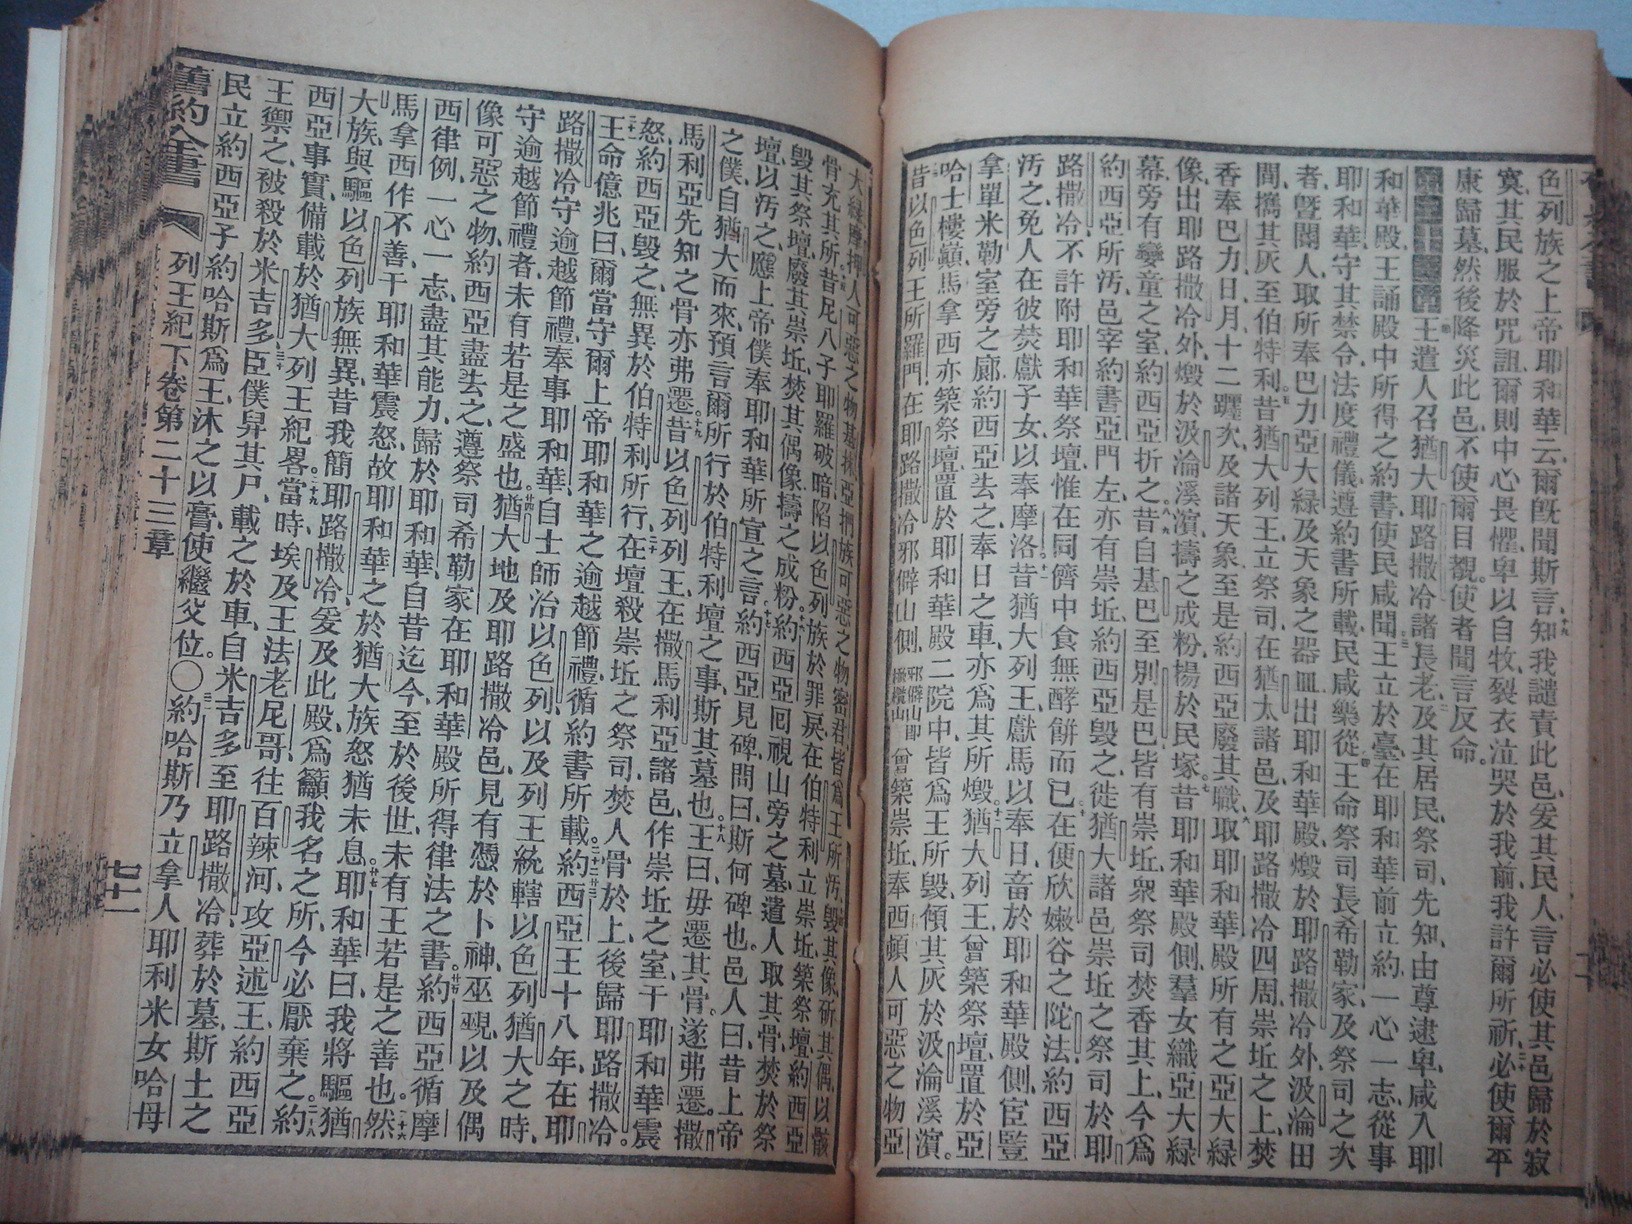 色列族之上帝耶和華云、爾旣聞斯言、十九知我譴責此邑、爰及其民人、言必使其邑歸於寂
寞、其民服於咒詛、爾則中心畏懼、卑以自牧、裂衣泣哭於我前、我許爾所祈、二十必使爾平
康歸墓、然後降災此邑、不使爾目覩、使者聞言反命。
王遣人召猶大耶路撒冷諸長老、及其居民祭司先知、由尊逮卑、咸入耶
和華殿、王誦殿中所得之約書、使民咸聞、三王立於臺、在耶和華前立約、一心一志、從事
耶和華、守其禁令法度禮儀、遵約書所載、民咸樂從、四王命祭司長希勒家、及祭司之次
者、曁閽人、取所奉巴力、亞大緑、及天象之器皿、出耶和華殿、燬於耶路撒冷外、汲淪田
間、攜其灰至伯特利、五昔猶大列王、立祭司在猶太諸邑、及耶路撒冷四周、崇坵之上、焚
香奉巴力、日月十二躔次、及諸天象、至是約西亞廢其職、六取耶和華殿所有之亞大緑
像、出耶路撒冷外、燬於汲淪溪濱、擣之成粉、揚於民塚、七昔耶和華殿側、羣女織亞大緑
幕、旁有孌童之室、約西亞折之、八昔自基巴至別是巴、皆有崇坵、衆祭司焚香其上、今爲
約西亞所汚、邑宰約書亞門左、亦有崇坵、約西亞毀之、徙猶大諸邑崇坵之祭司於耶
路撒冷、九不許附耶和華祭壇、惟在同儕中食無酵餅而已、十在便欣嫩谷之陀法、約西亞
汚之、免人在彼焚獻子女、以奉摩洛、十一昔猶大列王、獻馬以奉日、畜於耶和華殿側、宦豎
拿單米勒室旁之廊、約西亞去之、奉日之車、亦爲其所燬、十二猶大列王、曾築祭壇、置於亞
哈士樓巔、馬拿西亦築祭壇、置於耶和華殿二院中、皆爲王所毀、傾其灰於汲淪溪濱。
昔以色列王所羅門、在耶路撒冷邪僻山側、邪僻山卽橄欖山曾築崇坵、奉西頓人可惡之物亞
大緑、摩押人可惡之物基抹、亞捫族可惡之物密君、皆爲王所汚、毀其像、斫其偶、以骸
骨充其所、昔尼八子耶羅破暗、陷以色列族於罪戾、在伯特利立崇坵、築祭壇、約西亞
毀其祭壇、廢其崇坵、焚其偶像、擣之成粉、約西亞囘視山旁之墓、遣人取其骨、焚於祭
壇以汚之、應上帝僕奉耶和華所宣之言、十七約西亞見碑、問曰、斯何碑也、邑人曰、昔上帝
之僕、自猶大而來、預言爾所行於伯特利壇之事、斯其墓也、十八王曰、毋遷其骨、遂弗遷、撒
馬利亞先知之骨亦弗遷、十九昔以色列列王、在撒馬利亞諸邑、作崇坵之室、干耶和華震
怒、約西亞毀之、無異於伯特利所行、二十在壇殺崇坵之祭司、焚人骨於上、後歸耶路撒冷。
王命億兆曰、爾當守爾上帝耶和華之逾越節禮、循約書所載、二十二、廿三約西亞王十八年、在耶
路撒冷守逾越節禮、奉事耶和華、自士師治以色列、以及列王統轄以色列猶大之時、
守逾越節禮者、未有若是之盛也、廿四猶大地及耶路撒冷邑、見有憑於卜神、巫覡、以及偶
像可惡之物、約西亞盡去之、遵祭司希勒家、在耶和華殿所得律法之書、廿五約西亞循摩
西律例、一心一志、盡其能力、歸於耶和華、自昔迄今、至於後世、未有王若是之善也、二十六然
馬拿西作不善、干耶和華震怒、故耶和華之於猶大族、怒猶未息、廿七耶和華曰、我將驅猶
大族、與驅以色列族無異、昔我簡耶路撒冷、爰及此殿、爲籲我名之所、今必厭棄之、二十八約
西亞事實、備載於猶大列王紀畧、二十九當時埃及王法老尼哥、往百辣河、攻亞述王、約西亞
王禦之、被殺於米吉多、三十臣僕舁其尸、載之於車、自米吉多至耶路撒冷、葬於墓、斯土之
民立約西亞子約哈斯爲王、沐之以膏、使繼父位。〇約哈斯乃立拿人耶利米女哈母
舊約全書
列王紀下卷第二十三章
七十一